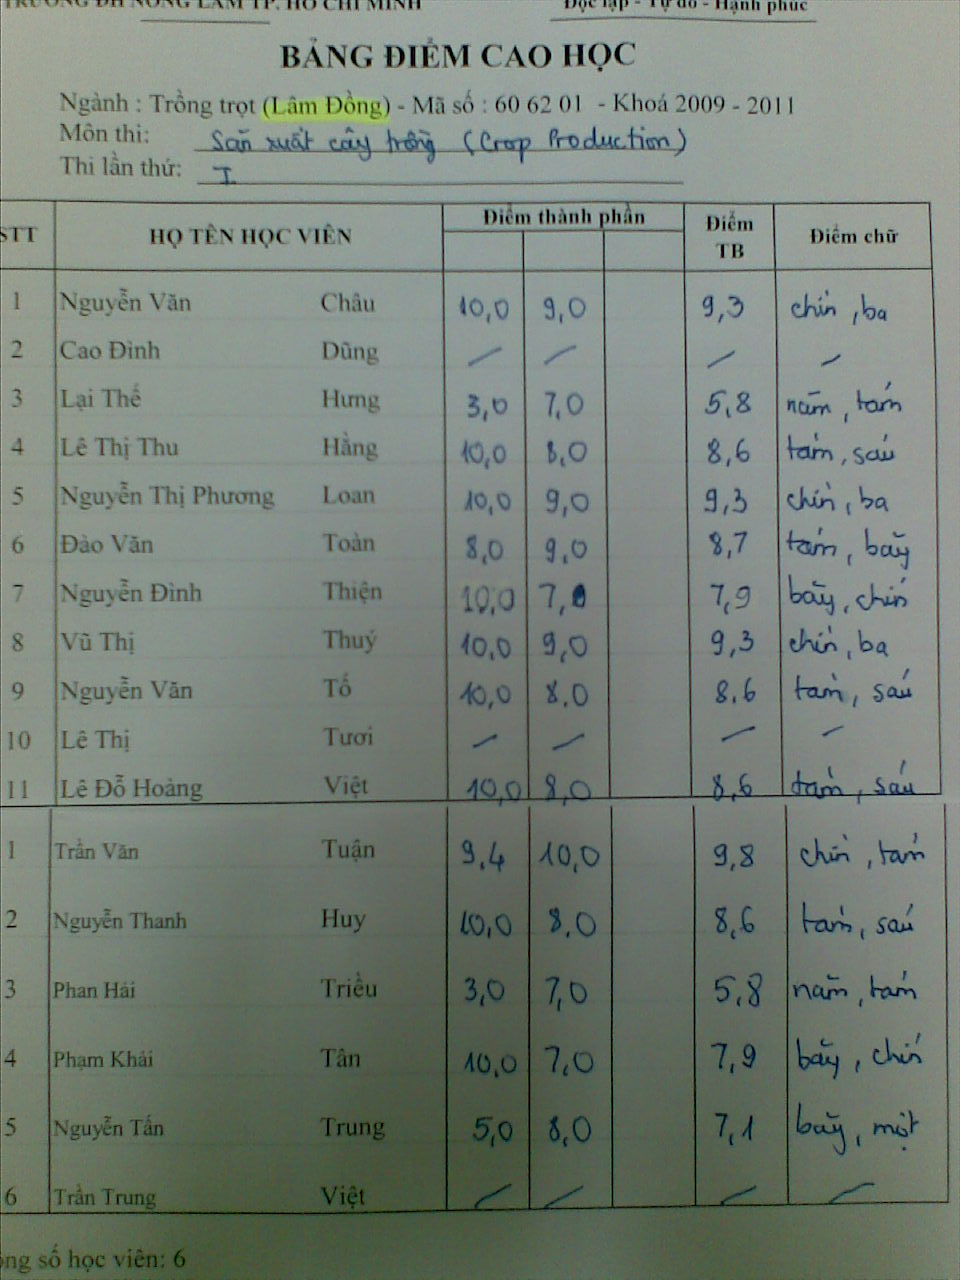 TRƯỜNG ĐH NÔNG LÂM TP. HỒ CHÍ MINH Độc lập - Tự do - Hạnh phúc
BẢNG ĐIỂM CAO HỌC
Ngành : Trồng trọt (Lâm Đồng) - Mã số : 60 62 01 - Khoá 2009 - 2011
Môn thi: Sản xuất cây trồng (Crop Production)
Thi lần thứ: I
STT HỌ TÊN HỌC VIÊN Điểm thành phần Điểm TB Điểm chữ
1 Nguyễn Văn Châu 10,0 9,0 9,3 chín, ba
2 Cao Đình Dũng / / / /
3 Lại Thế Hưng 3,0 7,0 5,8 năm, tám
4 Lê Thị Thu Hằng 10,0 8,0 8,6 tám, sáu
5 Nguyễn Thị Phương Loan 10,0 9,0 9,3 chín, ba
6 Đào Văn Toàn 8,0 9,0 8,7 tám, bảy
7 Nguyễn Đình Thiện 10,0 7,0 7,9 bảy, chín
8 Vũ Thị Thuý 10,0 9,0 9,3 chín, ba
9 Nguyễn Văn Tố 10,0 8,0 8,6 tám, sáu
10 Lê Thị Tươi / / / /
11 Lê Đỗ Hoàng Việt 10,0 8,0 8,6 tám, sáu
1 Trần Văn Tuận 9,4 10,0 9,8 chín, tám
2 Nguyễn Thanh Huy 10,0 8,0 8,6 tám, sáu
3 Phan Hải Triều 3,0 7,0 5,8 năm, tám
4 Phạm Khải Tân 10,0 7,0 7,9 bảy, chín
5 Nguyễn Tấn Trung 5,0 8,0 7,1 bảy, một
6 Trần Trung Việt / / / /
ông số học viên: 6